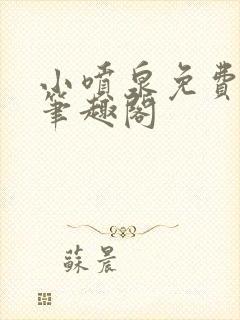 小噴泉免費
筆趣閣
蘇晨